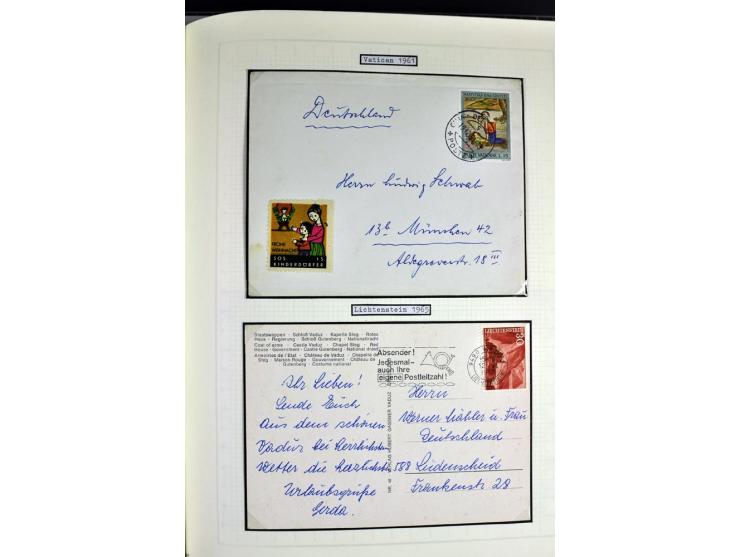 Vatican 1961
Deutschland
Herrn Ludwig Schwab
13b München 42
Aldegreverstr. 18 III
FROHE
WEIHNACHT
SOS 15
KINDERDÖRFER
Lichtenstein 1965
Staatswappen - Schloß Vaduz - Kapelle Steg - Rotes
Haus - Regierung - Schloß Gutenberg - Nationaltracht
Coat of arms - Castle Vaduz - Chapel Steg - Red
House - Government - Castle Gutenberg - National dress
Armoiries de l'Etat - Château de Vaduz - Chapelle de
Steg - Maison Rouge - Gouvernement - Château de
Gutenberg - Costume national
Absender!
Jedesmal-
auch Ihre
eigene Postleitzahl!
LIECHTENSTEIN
Ihr Lieben!
Sende Euch
aus dem schönen
Vaduz bei herrlichstem
Wetter die herzlichsten
Urlaubsgrüße
Gerda.
Herrn
Werner Mähler u. Frau
Deutschland
588 Lüdenscheid
Frankenstr 28